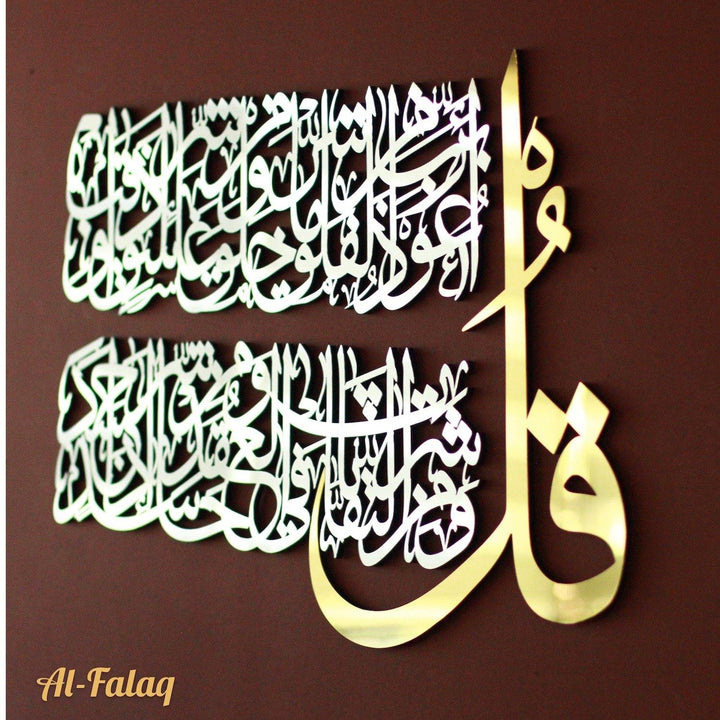 قل
أعوذ برب الفلق من شر ما خلق ومن شر غاسق إذا وقب
ومن شر النفاثات في العقد ومن شر حاسد إذا حسد
Al-Falaq